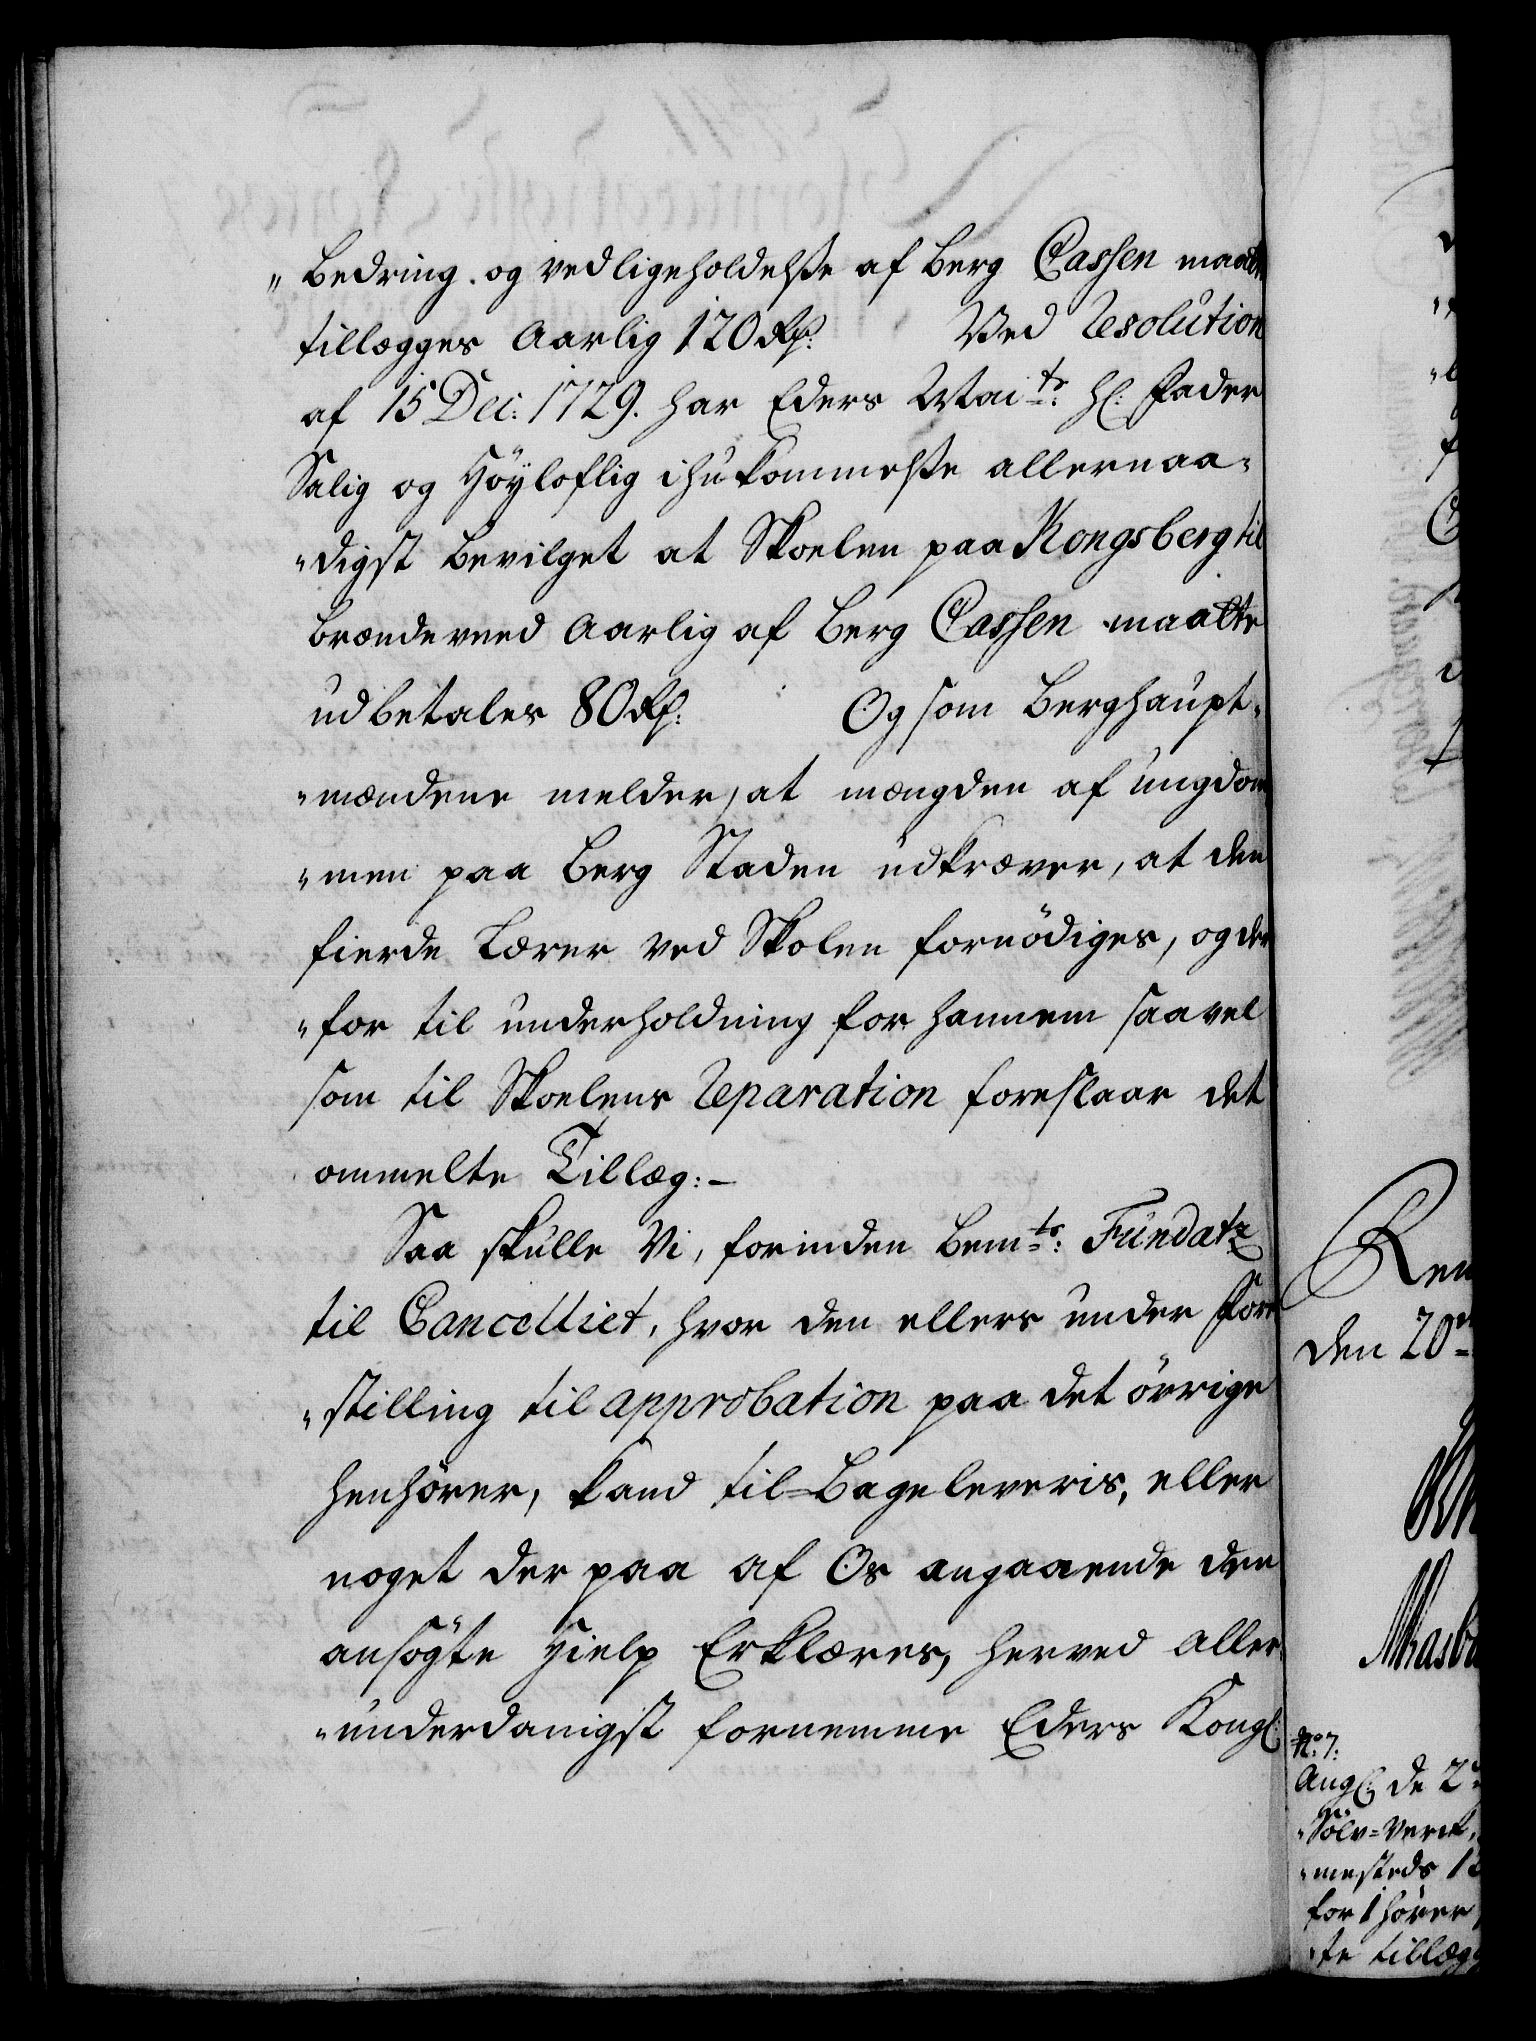 „bedring og vedligeholdelse af Berg Cassen maatte
tillægges Aarlig 120 Rd: Ved Resolution
af 15 Dec: 1729. har Eders Mai^ts: Hr: Fader
Salig og Höyloflig ihukommelse allernaa-
„digst bevilget at Skoelen paa Kongsberg til
brændeveed Aarlig af Berg Cassen maatte
udbetales 80 Rd: Og som Berghaupt-
„mændene melder, at mængden af ungdom-
„men paa Berg Staden udkræver, at den
fierde Lærer ved Skolen fornödiges, og der
„for til underholdning for hannem saavel
som til Skoelens Reparation foreslaar det
ommelte Tillæg:-
Saa skulle Vi, forinden bem^te: Fundatz
til Cancelliet, hvor den ellers under Fore
„stilling til approbation paa det övrige
henhörer, kand til-bageleveris, eller
noget der paa af Os angaaende den
ansögte Hielp Erklæres, herved aller-
„underdanigst fornemme Eders Kongl:
Ren
den 20^de
No 7:
Ang: de 2
„Sölv-Verk,
„mesteds 12
for 1 hörer
„te tillæg